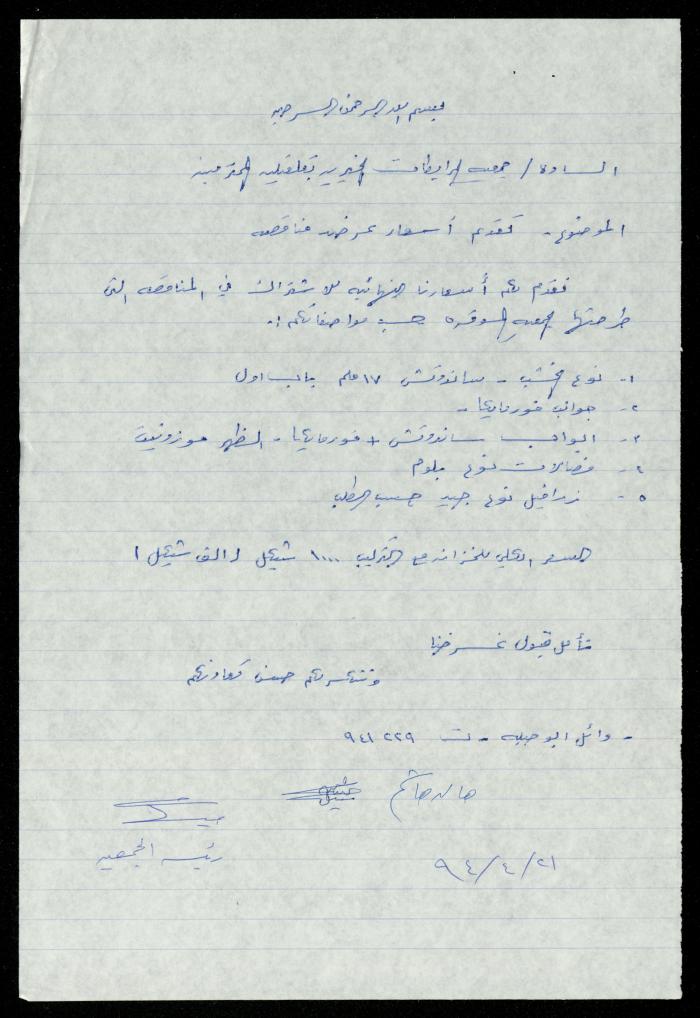 بسم الله الرحمن الرحيم
السادة / جمعية المرابطات الخيرية بقلقيلية المحترمين
الموضوع - تقديم أسعار عرض مناقصة
نقدم لكم أسعارنا النهائية للاشتراك في المناقصة التي
طرحتها الجمعية الموقرة حسب مواصفاتكم :.
١- نوع الخشب - ساندوتش ١٧ ملم باب اول
٢- جوانب فورمايكا -
٣- الواجب ساندوتش + فورمايكا - الظهر موزونيت
٤- فصالات نوع بلوم
٥- زرافيل نوع جيد حسب الطلب
السعر الكلي للخزانة مع التركيب ١٠٠٠ شيكل (الف شيكل)
نأمل قبول عرضنا
ونشكر لكم حسن تعاونكم
- وائل ابو حجلة - ت ٩٤١٢٢٩
خالد هاشم
رئيسة الجمعية
٩٤/٤/٢١